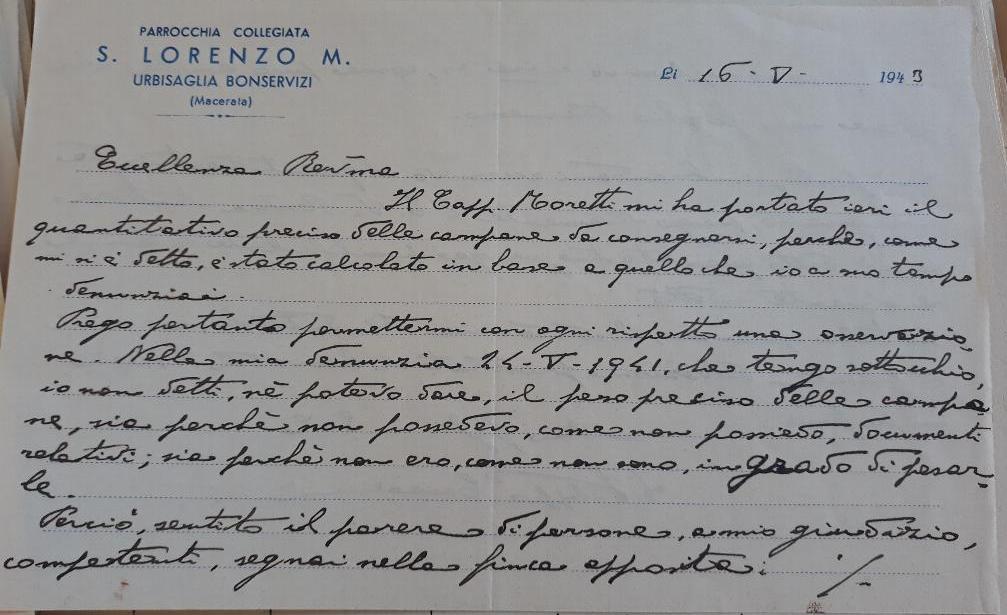 PARROCCHIA COLLEGIATA
S. LORENZO M.
URBISAGLIA BONSERVIZI
(Macerata)
Li 16 - V - 1943
Eccellenza Rev̄ma
Il Capp. Moretti mi ha portato ieri il
quantitativo preciso delle campane da consegnarsi, perchè, come
mi si è detto, è stato calcolato in base a quello che io a suo tempo
denunziai.
Prego pertanto permettermi con ogni rispetto una osservazio-
ne. Nella mia denunzia 24-V-1941, che tengo sott'occhio,
io non detti, nè potevo dare, il peso preciso delle campa-
ne, sia perchè non possedevo, come non possiedo, documenti
relativi; sia perchè non ero, come non sono, in grado di pesar-
le.
Perciò, sentito il parere di persone, a mio giudizio,
competenti, segnai nella finca apposita: ./.